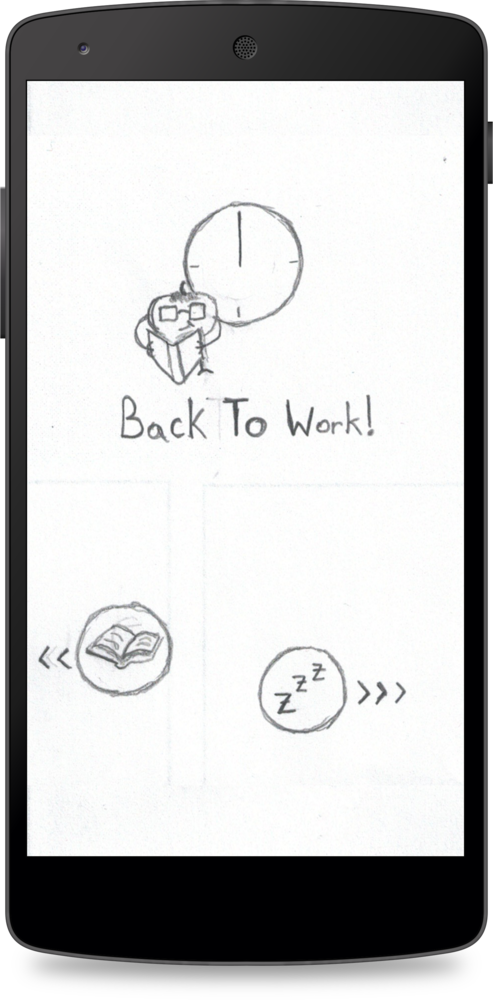 Back To Work!
<<
z z z
>>>